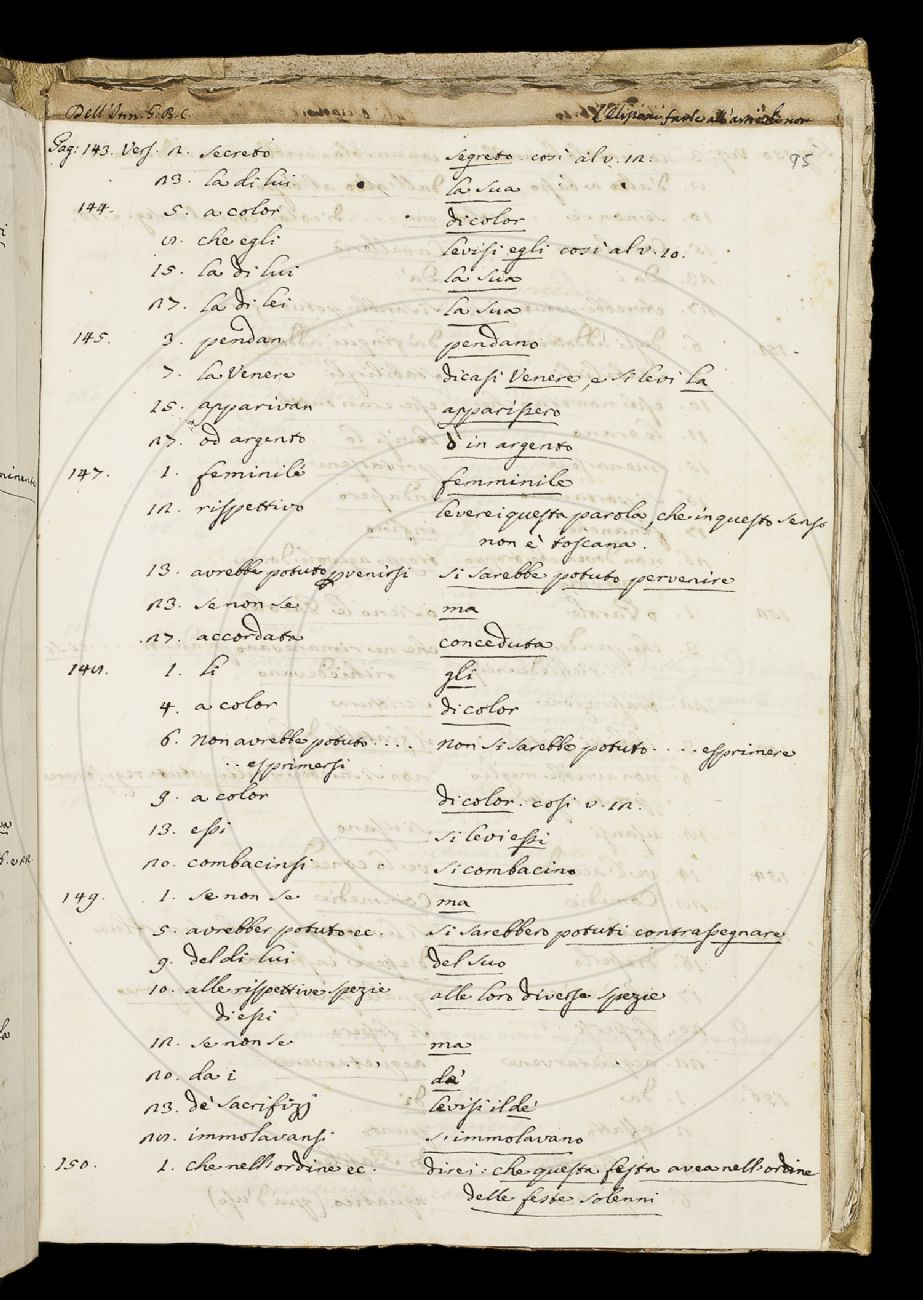 Dell' Inn. G. B. C.
Pag: 143. Vers. 2. secreto segreto. così al v. 12.
95
23. la di lui la sua
144. 5. a color di color
8. che egli levisi egli così al v. 10.
15. la di lui la sua
27. la di lei la sua
145. 3. pendan pendano
7. la Venere dicasi Venere, e si levi la
15. apparivan apparissero
27. od argento o in argento
147. 1. feminile femminile
12. rispettivo leverei questa parola, che in questo senso
non è toscana.
13. avrebbe potuto pvenirsi si sarebbe potuto pervenire
23. se non se ma
27. accordata conceduta
148. 1. li gli
4. a color di color
6. non avrebbe potuto .... non si sarebbe potuto ..... esprimere
.. esprimersi
9. a color di color. così v. 12.
13. essi si levi essi
20. combacinsi si combacino
149. 1. se non se ma
5. avrebber potuto ec. si sarebbero potuti contrassegnare
9. del di lui del suo
10. alle rispettive spezie alle loro diverse spezie
di essi
12. se non se ma
20. da i da'
23. de' sacrifizj levisi il de'
28. immolavansi s' immolavano
150. 1. che nell' ordine ec. direi: che questa festa avea nell' ordine
delle feste solenni